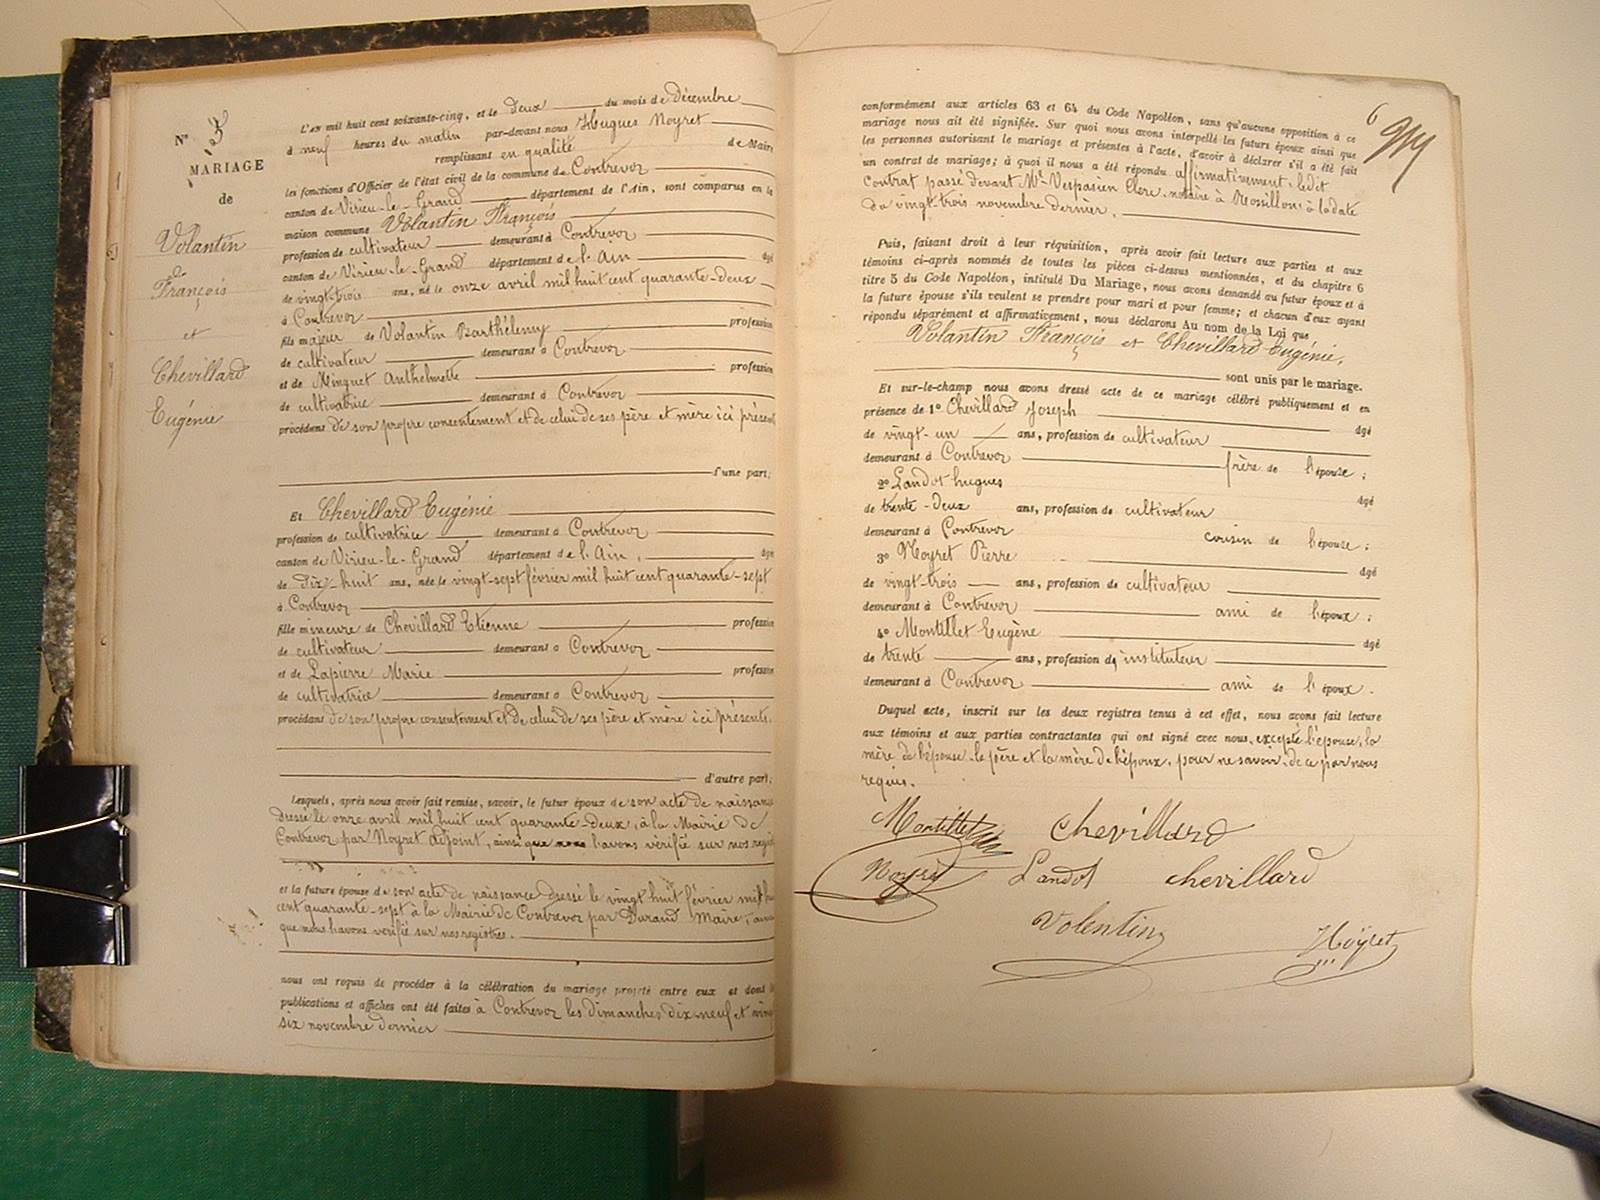 Nº 3
MARIAGE
de
Volantin
François
et
Chevillard
Eugénie
L'an mil huit cent soixante-cinq, et le Deux du mois de Décembre
à neuf heures du matin par-devant nous Hugues Noyret
remplissant en qualité de Maire
les fonctions d'Officier de l'état civil de la commune de Contrevoz
canton de Virieu-le-Grand département de l'Ain, sont comparus en la
maison commune Volantin François
profession de cultivateur demeurant à Contrevoz
canton de Virieu-le-Grand département de l'Ain âgé
de vingt-trois ans, né le onze avril mil huit cent quarante-deux
à Contrevoz
fils majeur de Volantin Barthélemy profession
de cultivateur demeurant à Contrevoz
et de Minguet Anthelmette profession
de cultivatrice demeurant à Contrevoz
procédant de son propre consentement et de celui de ses père et mère ici présents
d'une part;
Et Chevillard Eugénie
profession de cultivatrice demeurant à Contrevoz
canton de Virieu-le-Grand département de l'Ain, âgé
de dix-huit ans, née le vingt-sept février mil huit cent quarante-sept
à Contrevoz
fille mineure de Chevillard Etienne profession
de cultivateur demeurant à Contrevoz
et de Lapierre Marie profession
de cultivatrice demeurant à Contrevoz
procédant de son propre consentement et de celui de ses père et mère ici présents.
d'autre part;
Lesquels, après nous avoir fait remise, savoir, le futur époux de son acte de naissance
dressé le onze avril mil huit cent quarante-deux, à la Mairie de
Contrevoz par Noyret adjoint, ainsi que nous l'avons vérifié sur nos regist
et la future épouse de son acte de naissance dressé le vingt huit février mil hu
cent quarante-sept à la Mairie de Contrevoz par Durand Maire, ainsi
que nous l'avons vérifié sur nos registres.
nous ont requis de procéder à la célébration du mariage projeté entre eux et dont l
publications et affiches ont été faites à Contrevoz les dimanches dix-neuf et ving
six novembre dernier
6
conformément aux articles 63 et 64 du Code Napoléon, sans qu'aucune opposition à ce
mariage nous ait été signifiée. Sur quoi nous avons interpellé les futurs époux ainsi que
les personnes autorisant le mariage et présentes à l'acte, d'avoir à déclarer s'il a été fait
un contrat de mariage; à quoi il nous a été répondu affirmativement, ledit
Contrat passé devant Me Vespasien Clerc, notaire à Rossillon, à la date
du vingt-trois novembre dernier.
Puis, faisant droit à leur réquisition, après avoir fait lecture aux parties et aux
témoins ci-après nommés de toutes les pièces ci-dessus mentionnées, et du chapitre 6
titre 5 du Code Napoléon, intitulé Du Mariage, nous avons demandé au futur époux et à
la future épouse s'ils veulent se prendre pour mari et pour femme; et chacun d'eux ayant
répondu séparément et affirmativement, nous déclarons Au nom de la Loi que
Volantin François et Chevillard Eugénie,
sont unis par le mariage.
Et sur-le-champ nous avons dressé acte de ce mariage célébré publiquement et en
présence de 1º Chevillard Joseph âgé
de vingt-un ans, profession de cultivateur
demeurant à Contrevoz frère de l'épouse;
2º Landot hugues âgé
de trente-deux ans, profession de cultivateur
demeurant à Contrevoz cousin de l'épouse;
3º Noyret Pierre âgé
de vingt-trois ans, profession de cultivateur
demeurant à Contrevoz ami de l'époux;
4º Montillet Eugène âgé
de trente ans, profession d'instituteur
demeurant à Contrevoz ami de l'époux.
Duquel acte, inscrit sur les deux registres tenus à cet effet, nous avons fait lecture
aux témoins et aux parties contractantes qui ont signé avec nous, excepté l'épouse, la
mère de l'épouse, le père et la mère de l'époux, pour ne savoir, de ce par nous
requis.
Montillet Chevillard
Noyret Landot chevillard
Volentin Noÿret